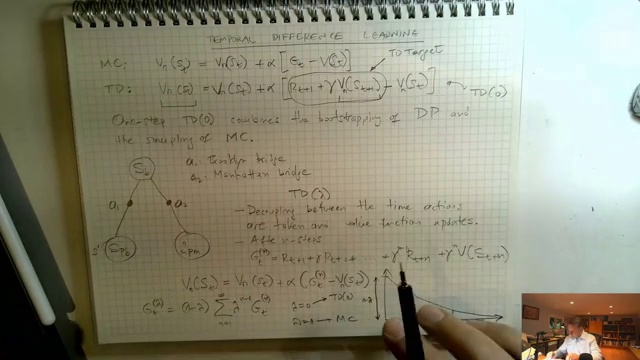 TEMPORAL DIFFERENCE LEARNING
TD Target
MC: Vπ(St) = Vπ(St) + α [Gt - V(St)]
TD: Vπ(St) = Vπ(St) + α [Rt+1 + γ Vπ(St+1) - Vπ(St)] TD(0)
One-step TD(0) combines the bootstrapping of DP and
the sampling of MC.
a1: Brooklyn bridge
a2: Manhattan bridge
a1 a2
TD(λ)
- Decoupling between the time actions
are taken and value function updates.
- After n-steps
Gt(n) = Rt+1 + γ Rt+2 + + γ Rt+n + γn V(St+n)
Vπ(St) = Vπ(St) + α (Gt(n) - Vπ(St))
λ=0 → TD(0)
MC